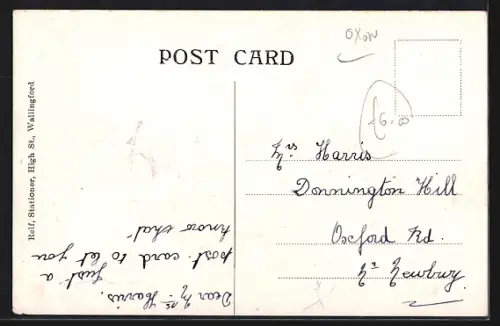 OXON
POST CARD
£6.00
Relf, Stationer, High St., Wallingford
Mrs Harris
Donnington Hill
Oxford Rd.
Nr Newbury
Dear Mrs Harris.
Just a
post card to let you
know that